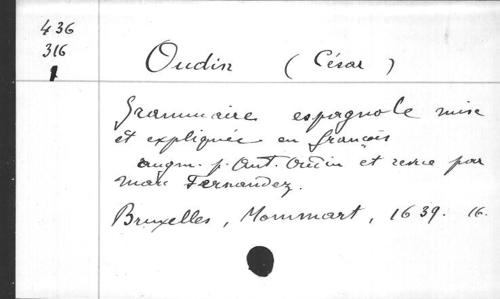 436
316
1
Oudin (César)
Grammaire espagnole mise
et expliquée en françois
augm. p. Ant. Oudin et revue par
Marc Fernandez.
Bruxelles, Mommart, 1639. 16.